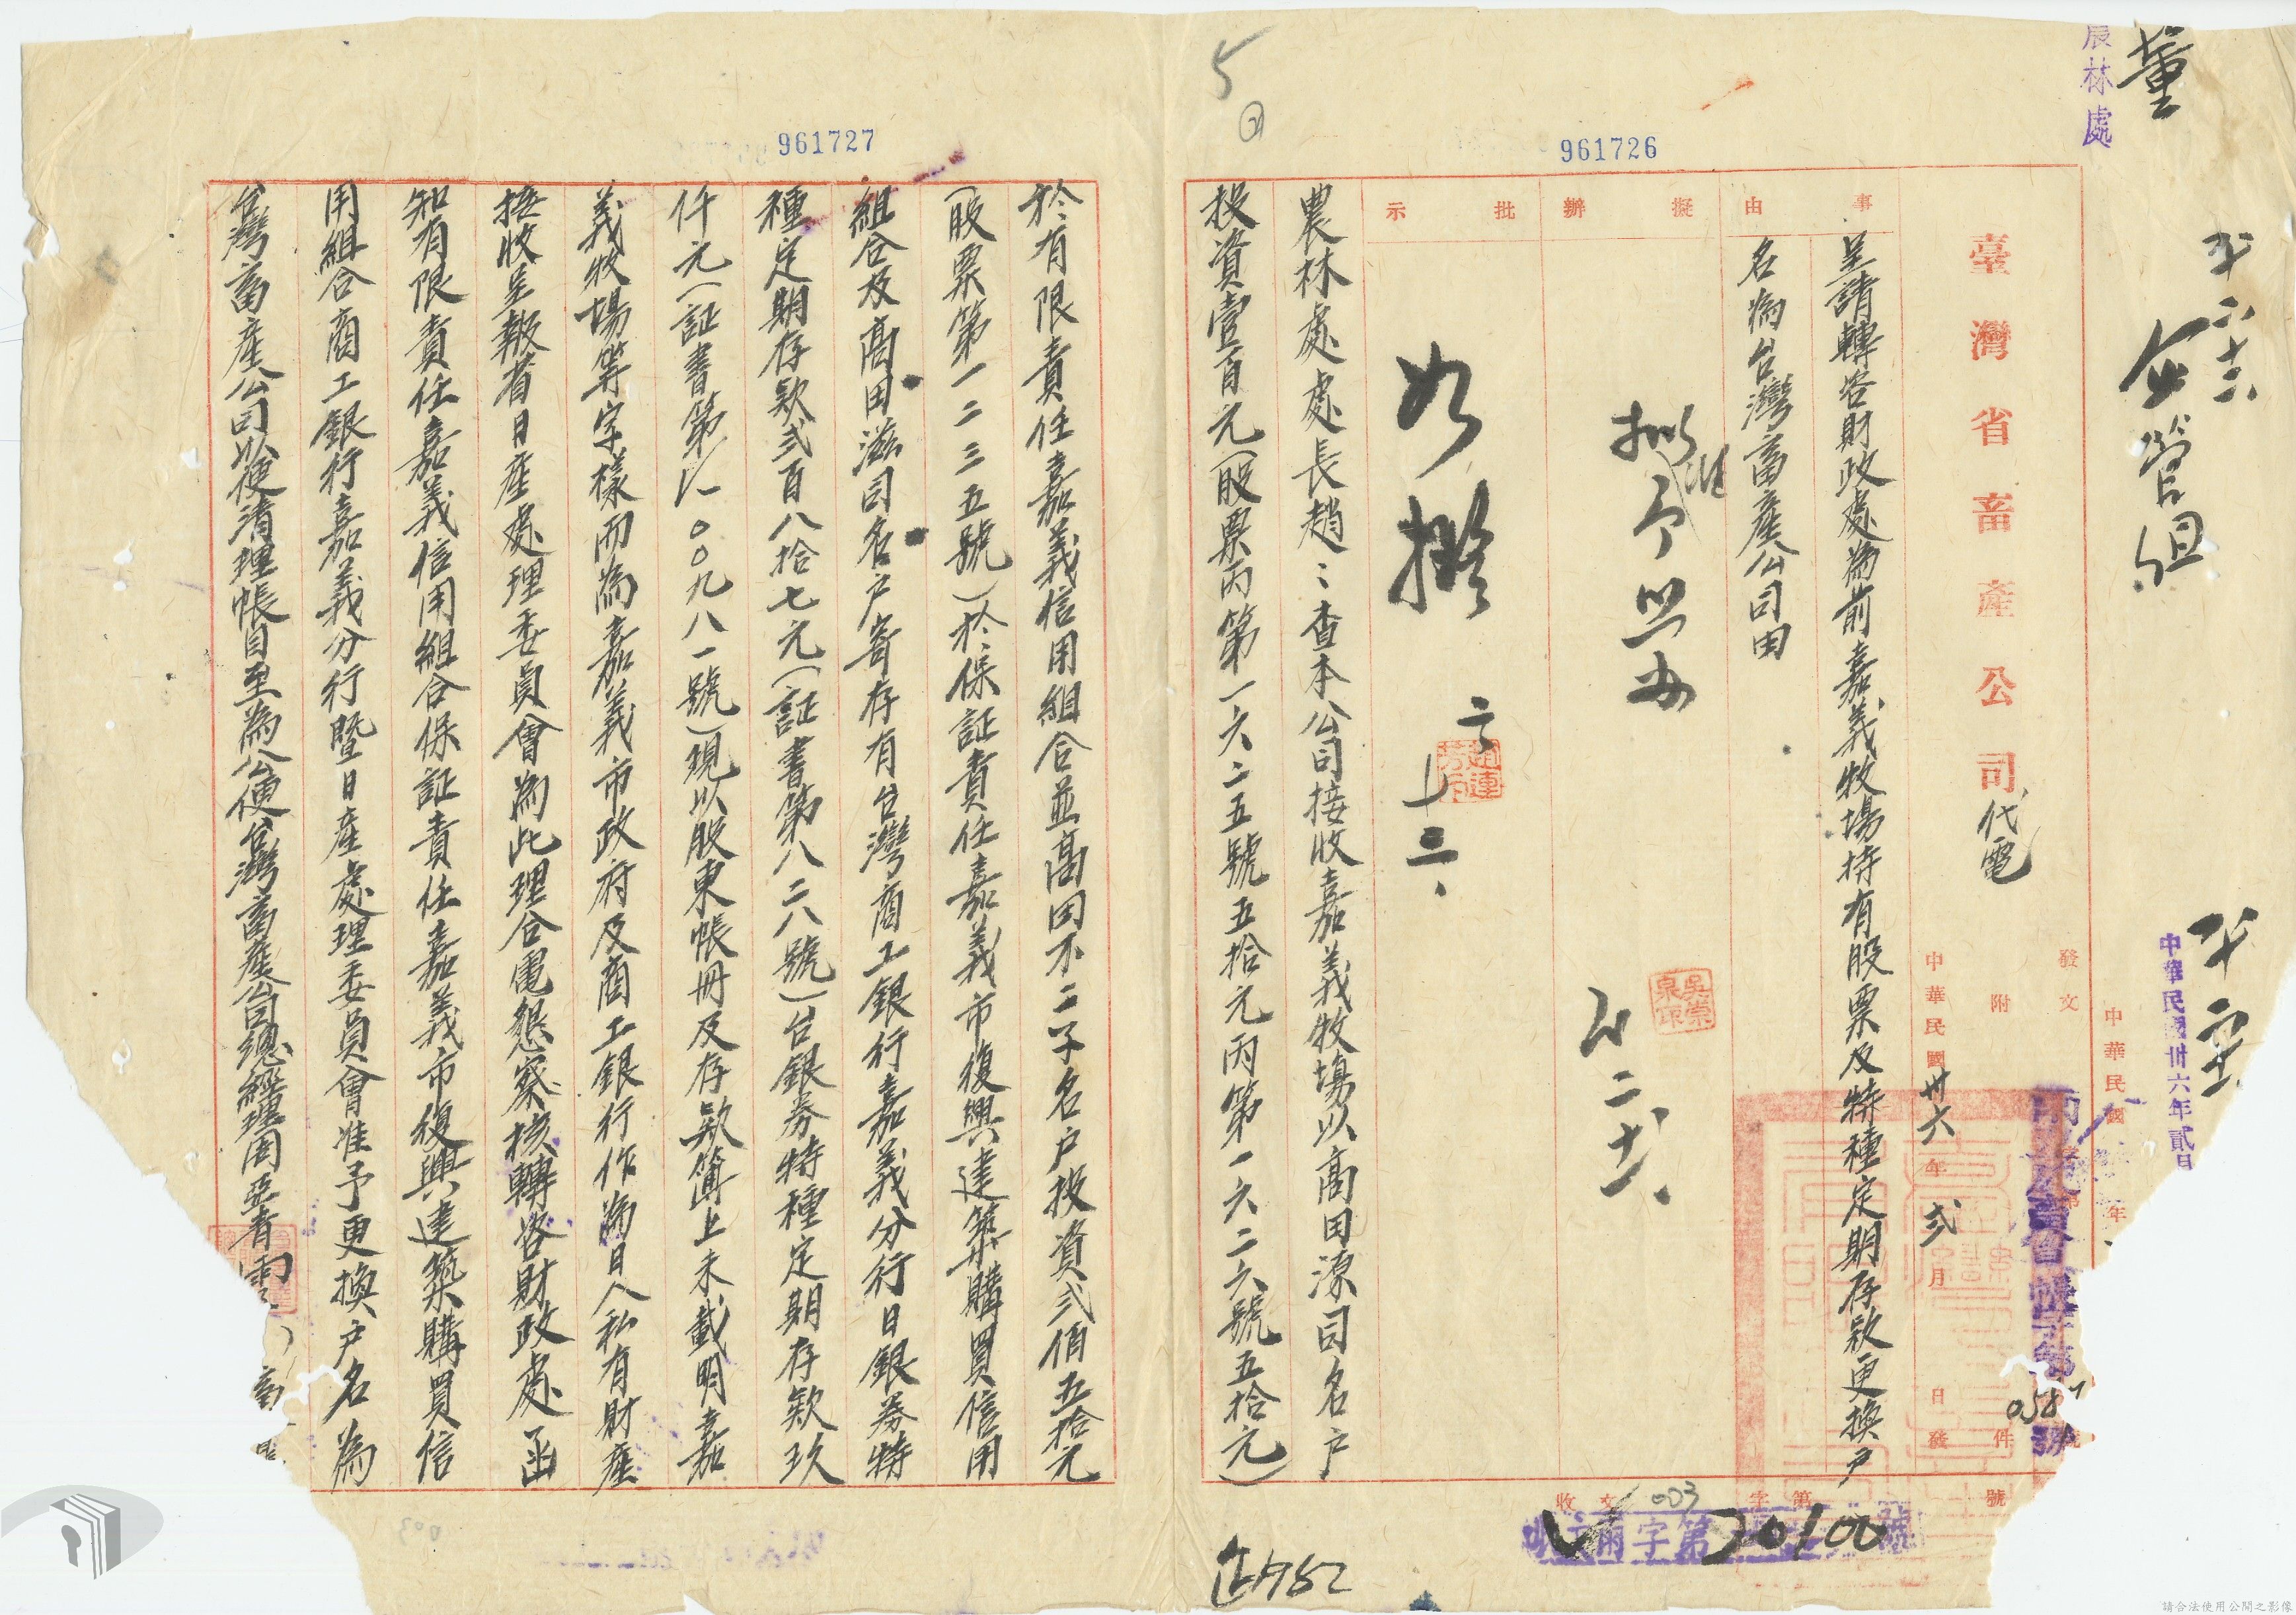 董
農林處
企營組
中華民國卅六年貳月
中華民國
年
發文
附
件
號
臺灣省畜產公司
代電
中華民國卅六年弍月
日發
0587
會帳字第
號
事由
呈請轉咨財政處為前嘉義牧場持有股票及特種定期存款更換戶
名為台灣畜產公司由
擬辦
擬准予照辦
吳崇泉印
批示
如擬
農林處處長趙:查本公司接收嘉義牧場以高田源司名戶
投資壹百元(股票丙第一六二五號五拾元丙第一六二六號五拾元)
收文
字第
號
003
20100
961726
5
於有限責任嘉義信用組合並高田不二子名戶投資弍佰五拾元
(股票第一二三五號)於保証責任嘉義市復興建築購買信用
組合及高田滋司名戶寄存有台灣商工銀行嘉義分行日銀券特
種定期存欵弍百八拾七元(証書第八二八號)台銀券特種定期存欵玖
仟元(証書第八一〇〇九八一號)現以股東帳冊及存欵簿上未載明嘉
義牧場等字樣而為嘉義市政府及商工銀行作為日人私有財產
接收呈報省日產處理委員會為此理合電懇察核轉咨財政處函
知有限責任嘉義信用組合保証責任嘉義市復興建築購買信
用組合商工銀行嘉義分行暨日產處理委員會准予更換戶名為
台灣畜產公司以便清理帳目至為公便台灣畜產公司總經理周亞青
961727
請合法使用公開之影像